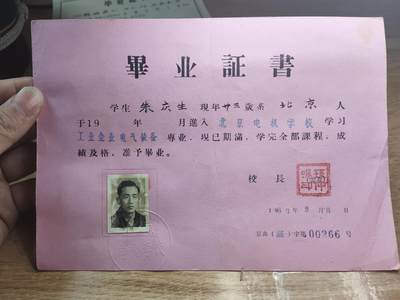 畢业証書
学生 朱庆生 现年廿三歲系 北京 人
于19 年 月進入 北京电机学校 学习
工业企业电气装备 专业，现已期滿，学完全部課程，成
績及格，准予畢业。
校長
196 年 8 月 日
字第 00266